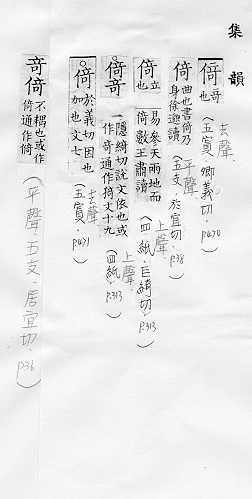 集韻
倚 奇也
去聲
(五寘.卿義切.p.470)
倚 曲也書倚乃身徐邈讀
平聲
(五支.於宜切.p.38)
倚 立也 易參天兩地而倚數王肅讀
上聲
(四紙.巨綺切.p.313)
倚 奇 隱綺切說文依也或作奇通作猗文十九
上聲
(四紙.p.313)
倚 於義切因也加也文七
去聲
(五寘.p.471)
奇 倚 不耦也或作倚通作
(平聲五支.居宜切.p.36)